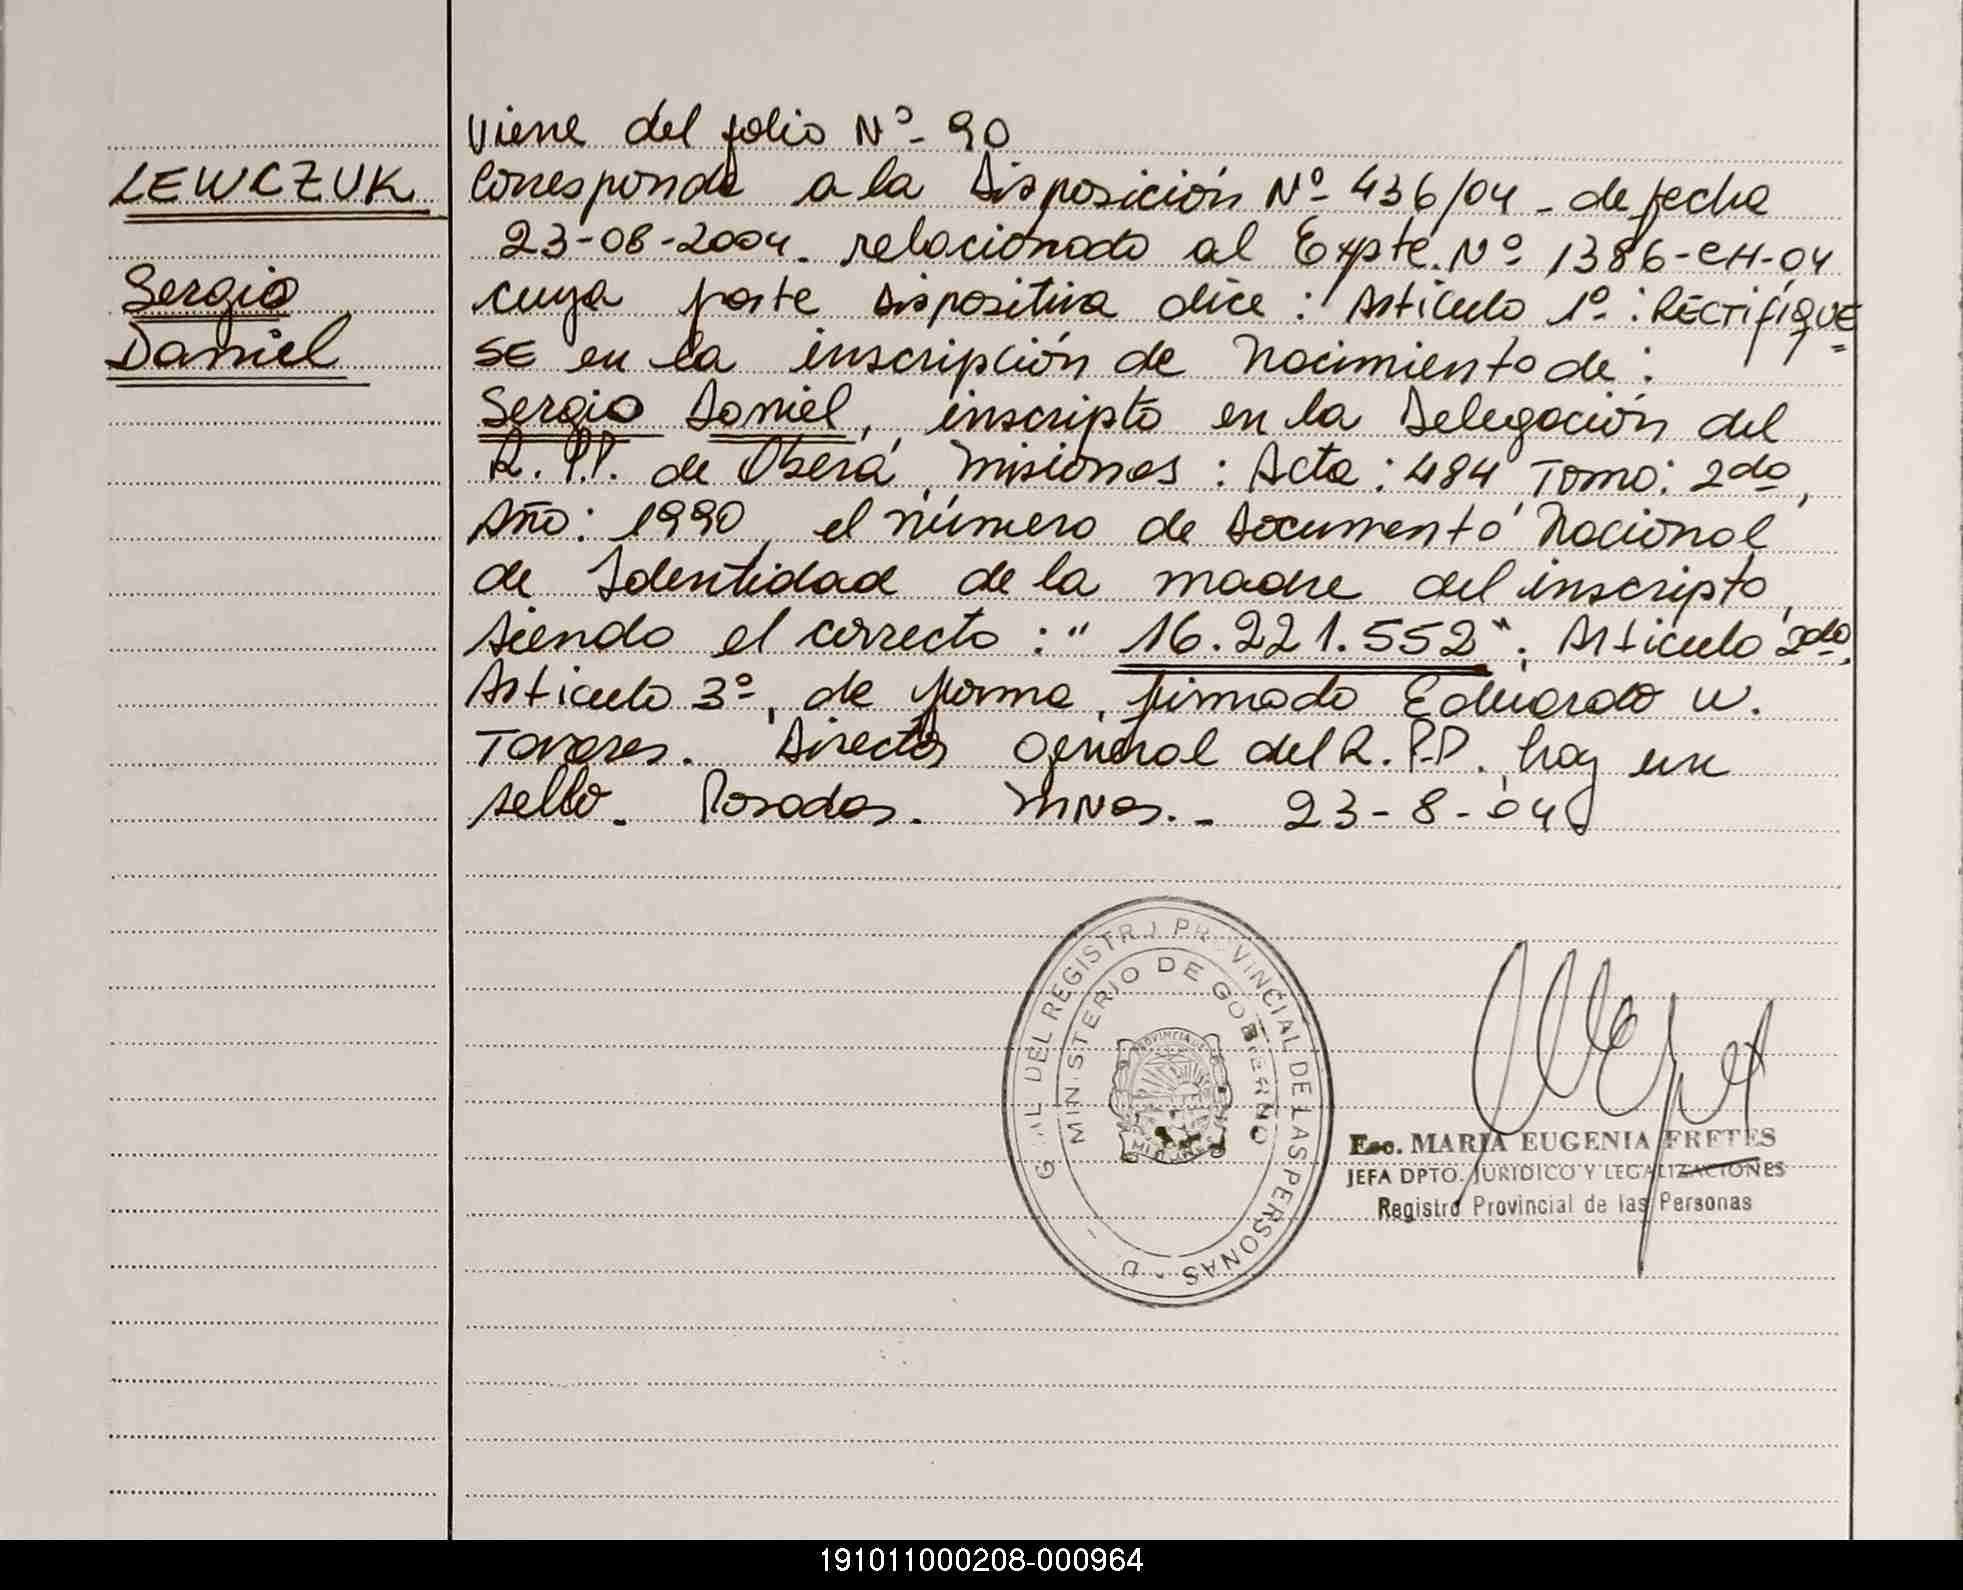 Viene del folio Nº- 90
LEWCZUK
Corresponde a la Disposición Nº 436/04 - de fecha
23-08-2004. relacionado al Expte. Nº 1386-CH-04
Sergio
cuya parte dispositiva dice: Artículo 1º: RECTIFIQUE
Daniel
SE en la inscripción de Nacimiento de:
Sergio Daniel, inscripto en la Delegación del
R. P.P. de Oberá, Misiones: Acta: 484 Tomo: 2do,
Año: 1990, el número de Documento Nacional
de Identidad de la madre del inscripto,
siendo el correcto: "16.221.552". Artículo 2do,
Artículo 3º, de forma, firmado Eduardo W.
Tavares. Director General del R. P.P. hay un
sello. Posadas. Mnes. - 23-8-04
G AL DEL REGISTR PROVINCIAL DE LAS PERSONAS
MINISTERIO DE GOBIERNO
PROVINCIA DE
MISIONES
Esc. MARIA EUGENIA FRETES
JEFA DPTO. JURIDICO Y LEGALIZACIONES
Registro Provincial de las Personas
191011000208-000964